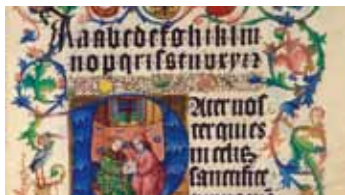 Aaabcdefghiklm
nopqrꝛſstuvxyz
PAter noſ
ter qui es
in celis
ſanctifice